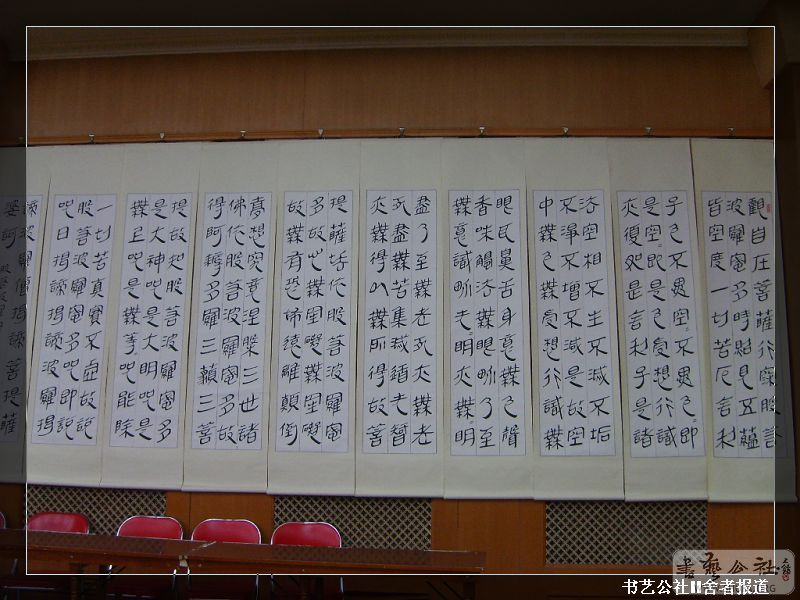 觀自在菩薩行深般若
波羅蜜多時照見五蘊
皆空度一切苦厄舍利
子色不異空=不異色=即
是空=即是色受想行識
亦復如是舍利子是諸
法空相不生不滅不垢
不淨不增不減是故空
中無色無受想行識無
眼耳鼻舌身意無色聲
香味觸法無眼界乃至
無意識界无明亦無=明
盡乃至無老死亦無老
死盡無苦集滅道无智
亦無得以無所得故菩
提薩埵依般若波羅蜜
多故心無罣礙無罣礙
故無有恐怖遠離顛倒
夢想究竟涅槃三世諸
佛依般若波羅蜜多故
得阿耨多羅三藐三菩
提故知般若波羅蜜多
是大神咒是大明咒是
無上咒是無等咒能除
一切苦真實不虛故說
般若波羅蜜多咒即說
咒曰揭諦揭諦波羅揭
諦波羅僧揭諦菩提薩
婆訶
書藝公社
书艺公社II舍者报道